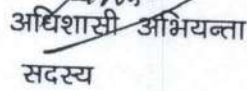 अधिशासी अभियन्ता
सदस्य